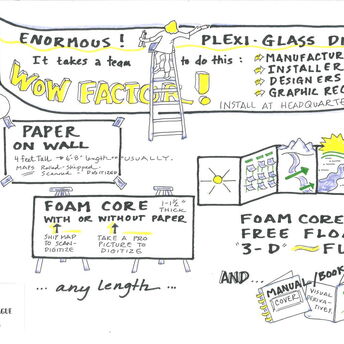 ENORMOUS! PLEXI-GLASS DI
It takes a team to do this:
→ MANUFACTUR
→ INSTALLER
→ DESIGNERS
→ GRAPHIC REC
WOW FACTOR!
INSTALL AT HEADQUARTE
PAPER
ON WALL
4 feet Tall → 6'-8' length → USUALLY.
MAPS Rolled - Shipped
Scanned - DIGITIZED
FOAM CORE
WITH OR WITHOUT PAPER
1-1½"
THICK
SHIP MAP
TO SCAN-
DIGITIZE
TAKE A PRO
PICTURE TO
DIGITIZE
... any length ...
FOAM CORE
FREE FLO
"3-D" ~ FU
AND...
MANUAL/BOOK
COVER
VISUAL
DERIVA-
TIVES.
GUE